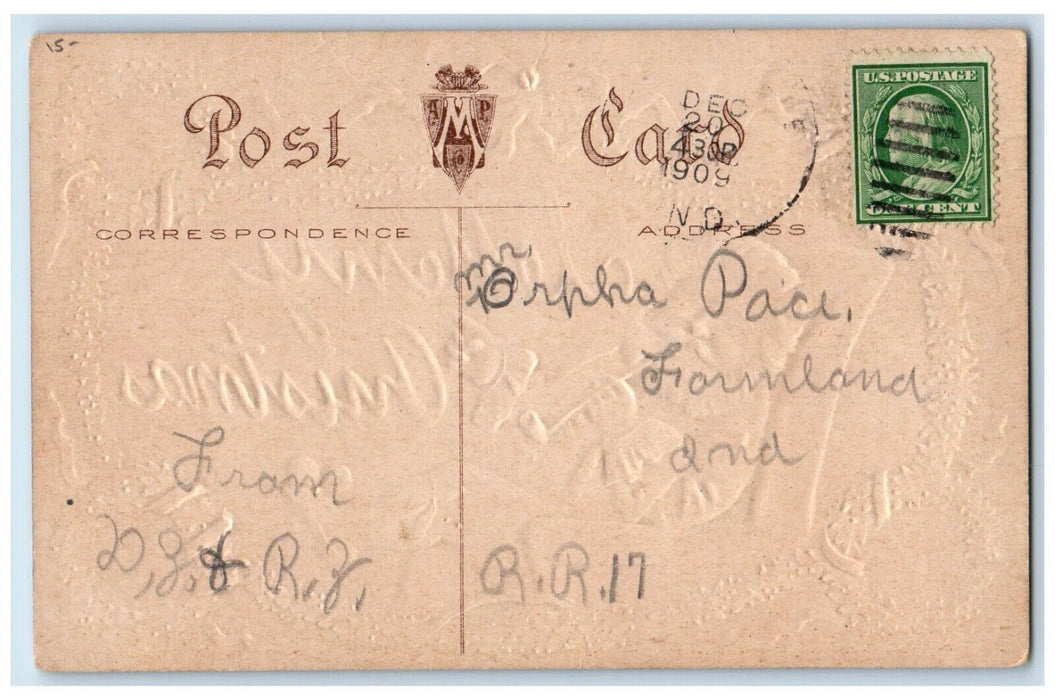 15-
Post Card
A M P
CO
DEC
20
430P
1909
N.D.
U.S. POSTAGE
ONE CENT
CORRESPONDENCE
ADDRESS
Mr
Orpha Pace.
Farmland
Ind
From
D, Z, & R, Z,
R.R.17
Christmas